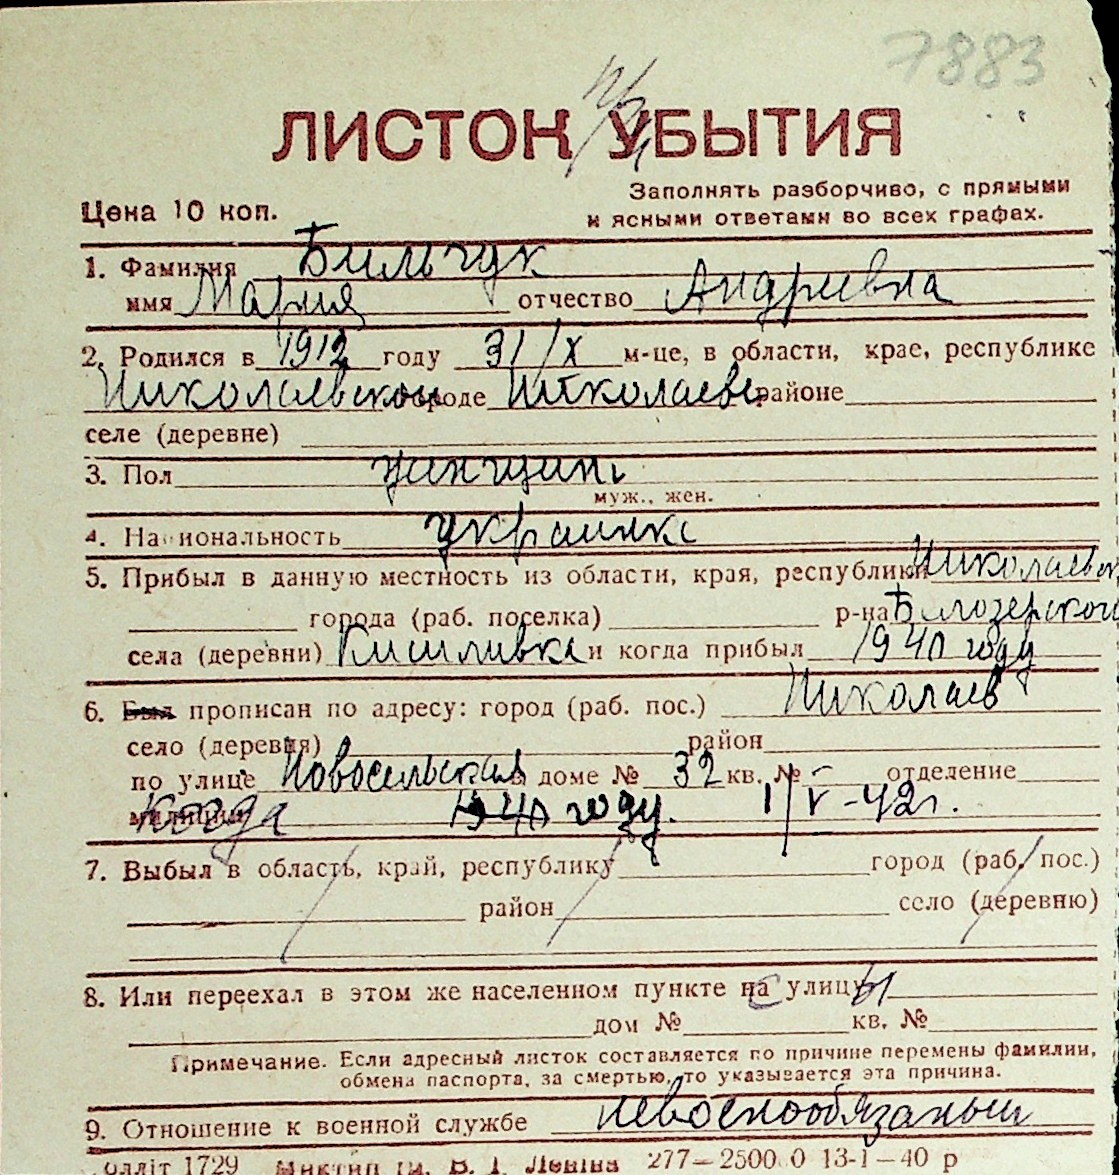 7883
ЛИСТОК УБЫТИЯ
Цена 10 коп.
Заполнять разборчиво, с прямыми
и ясными ответами во всех графах.
1. Фамилия Бильчук
имя Мария отчество Андревна
2. Родился в 1912 году 31/X м-це, в области, крае, республике
Николаевской городе Николаеве районе
селе (деревне)
3. Пол
муж., жен.
4. Национальность украинка
5. Прибыл в данную местность из области, края, республики Николаевск
города (раб. поселка) р-на Билозерской
села (деревни) Кишливка и когда прибыл 1940 году
6. Был прописан по адресу: город (раб. пос.) Николаев
село (деревня) район
по улице Новосельская в доме № 32 кв. № – отделение
милиции когда 1940 году. 1/V-42г.
7. Выбыл в область, край, республику город (раб. пос.)
район село (деревню)
8. Или переехал в этом же населенном пункте на улицу
дом № кв. №
Примечание. Если адресный листок составляется по причине перемены фамилии,
обмена паспорта, за смертью, то указывается эта причина.
9. Отношение к военной службе невоенообязаный
олліт 1729 Миктип ім. В. І. Леніна 277—2500.0 13-I—40 р